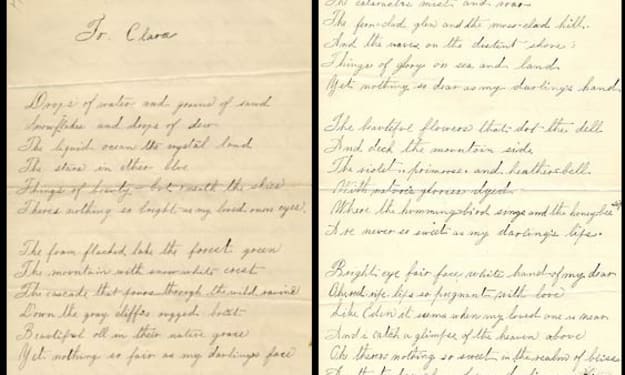 To. Clara
Drops of water and grains of sand
Snowflakes and drops of dew
The liquid ocean the crystal land
The stars in ether blue
Things of beauty but neath the skies
Theres nothing so bright as my loved ones eyes.
The foam flecked lake the forest green
The mountain with snow white crest
The cascade that pours through the wild ravine
Down the gray cliffs rugged breast
Beautiful all in their native grace
Yet nothing so fair as my darlings face
The cataracts mist and roar
The fern-clad glen and the moss-clad hill.
And the waves on the distant shore:
Things of glory on sea and land
Yet nothing so dear as my darling's hand
The beautiful flowers that dot the dell
And deck the mountain side
The violet, primrose and heatherbell
With nature's glories dyed
Where the hummingbird sings and the honeybee
Are never so sweet as my darling's lips.
Bright eye fair face white hand of my dear
Oh, red ripe lips so pregnant with love
Like Eden it seems when my loved one is near
And I catch a glimpse of the heaven above
Oh theres nothing so sweet in the realm of bliss